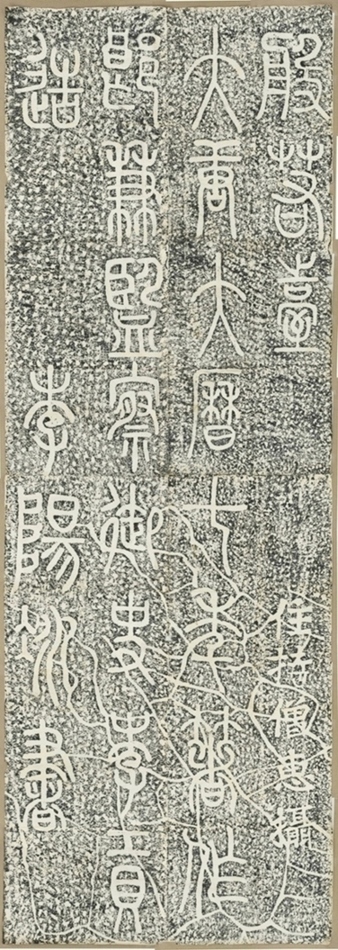 般若臺 住持僧惠攝
大唐大曆七年著作
郎兼監察御史李貢
造 李陽冰書